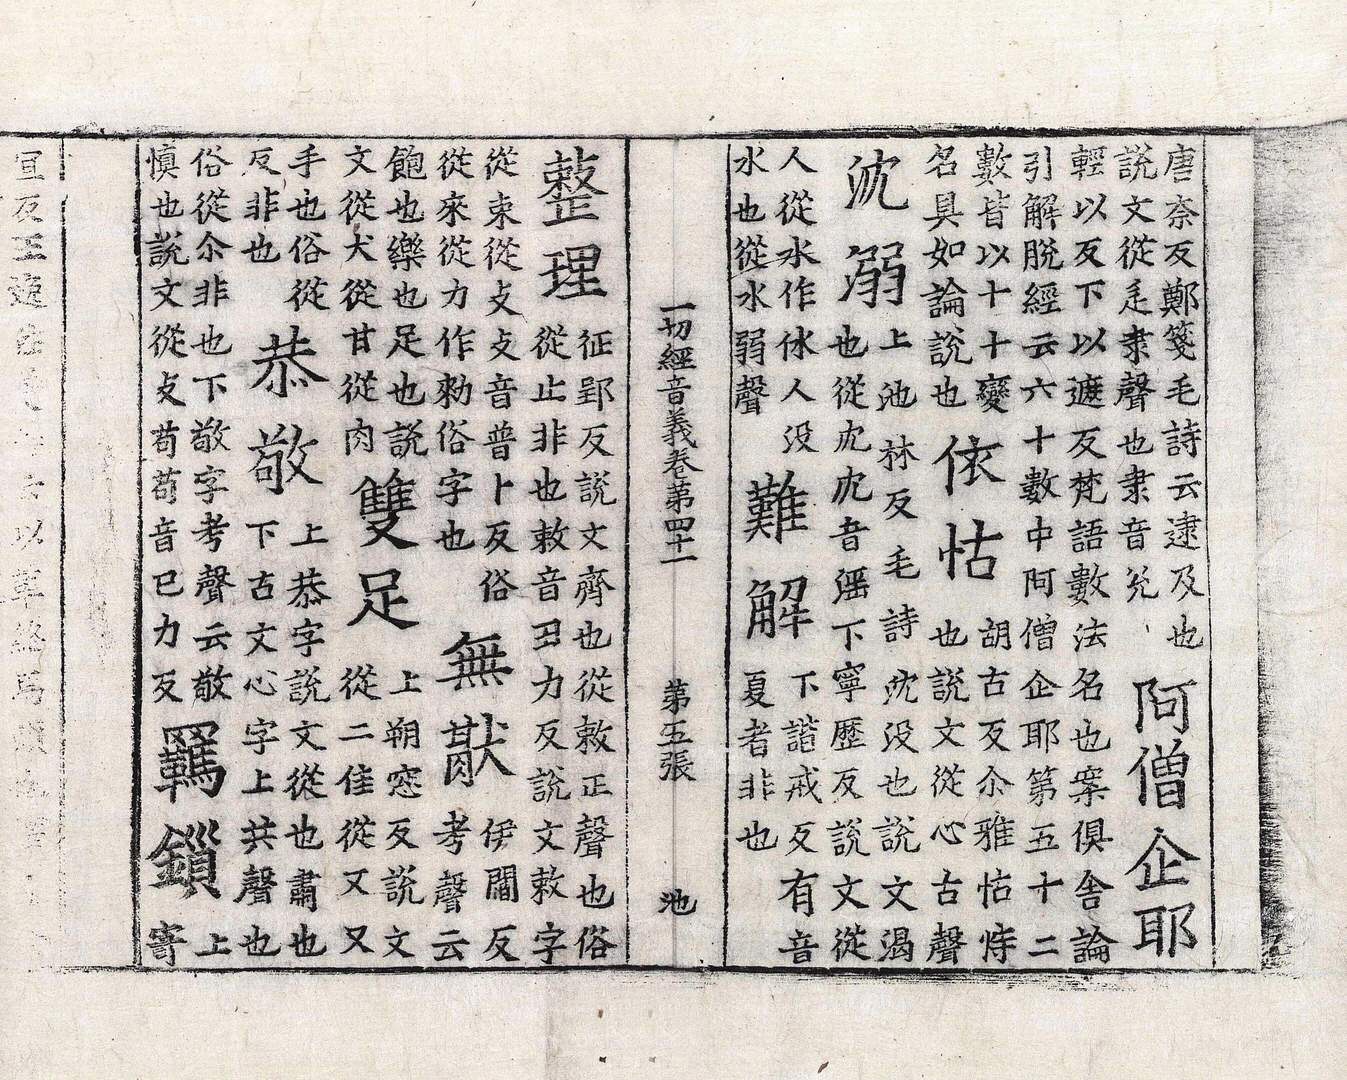 唐奈反鄭箋毛詩云逮及也
說文從辵隶聲也隶音兊
阿僧企耶
輕以反下以遮反梵語數法名也案俱舍論
引解脫經云六十數中阿僧企耶第五十二
數皆以十十變
名具如論說也
依怙
胡古反尒雅怙恃
也說文從心古聲
沈溺
上池林反毛詩沈没也說文渴
也從冘冘音滛下寧歷反說文從
人從水作㲻人没
水也從水弱聲
難解
下諧戒反有音
夏者非也
一切經音義卷第四十一 第五張 池
整理
征郢反說文齊也從敕正聲也俗
從止非也敕音丑力反說文敕字
從束從攴攴音普卜反俗
從來從力作勑俗字也
無猒
伊閻反
考聲云
飽也樂也足也說
文從犬從甘從肉
雙足
上朔窓反說文
從二隹從又又
手也俗從
反非也
恭敬
上恭字說文從也肅也
下古文心字上共聲也
俗從尒非也下敬字考聲云敬
慎也說文從攴茍茍音已力反
羈鎖
上
寄
冝反王逸注 以革絡馬